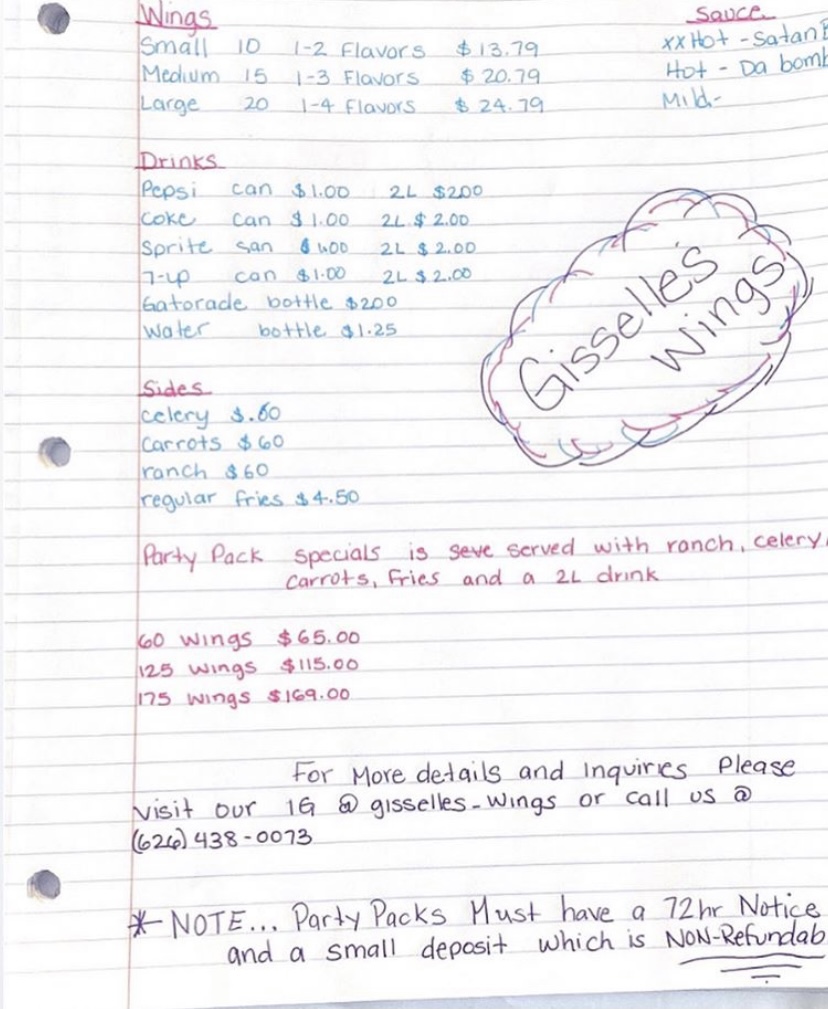 Wings
Small 10 1-2 Flavors $13.79
Medium 15 1-3 Flavors $20.79
Large 20 1-4 flavors $24.79
Sauce
xxHot - Satan
Hot - Da bomb
Mild-
Drinks
Pepsi can $1.00 2L $200
Coke can $1.00 2L $2.00
Sprite san $1.00 2L $2.00
7-up can $1.00 2L $2.00
Gatorade bottle $200
Water bottle $1.25
Gisselle's
Wings
Sides
celery $.60
Carrots $60
ranch $60
regular fries $4.50
Party Pack specials is seve served with ranch, celery,
carrots, Fries and a 2L drink
60 wings $65.00
125 wings $115.00
175 wings $169.00
For More details and Inquiries Please
visit our IG @ gisselles-Wings or call us @
(626) 438-0073
* NOTE... Party Packs Must have a 72hr Notice
and a small deposit which is NON-Refundab